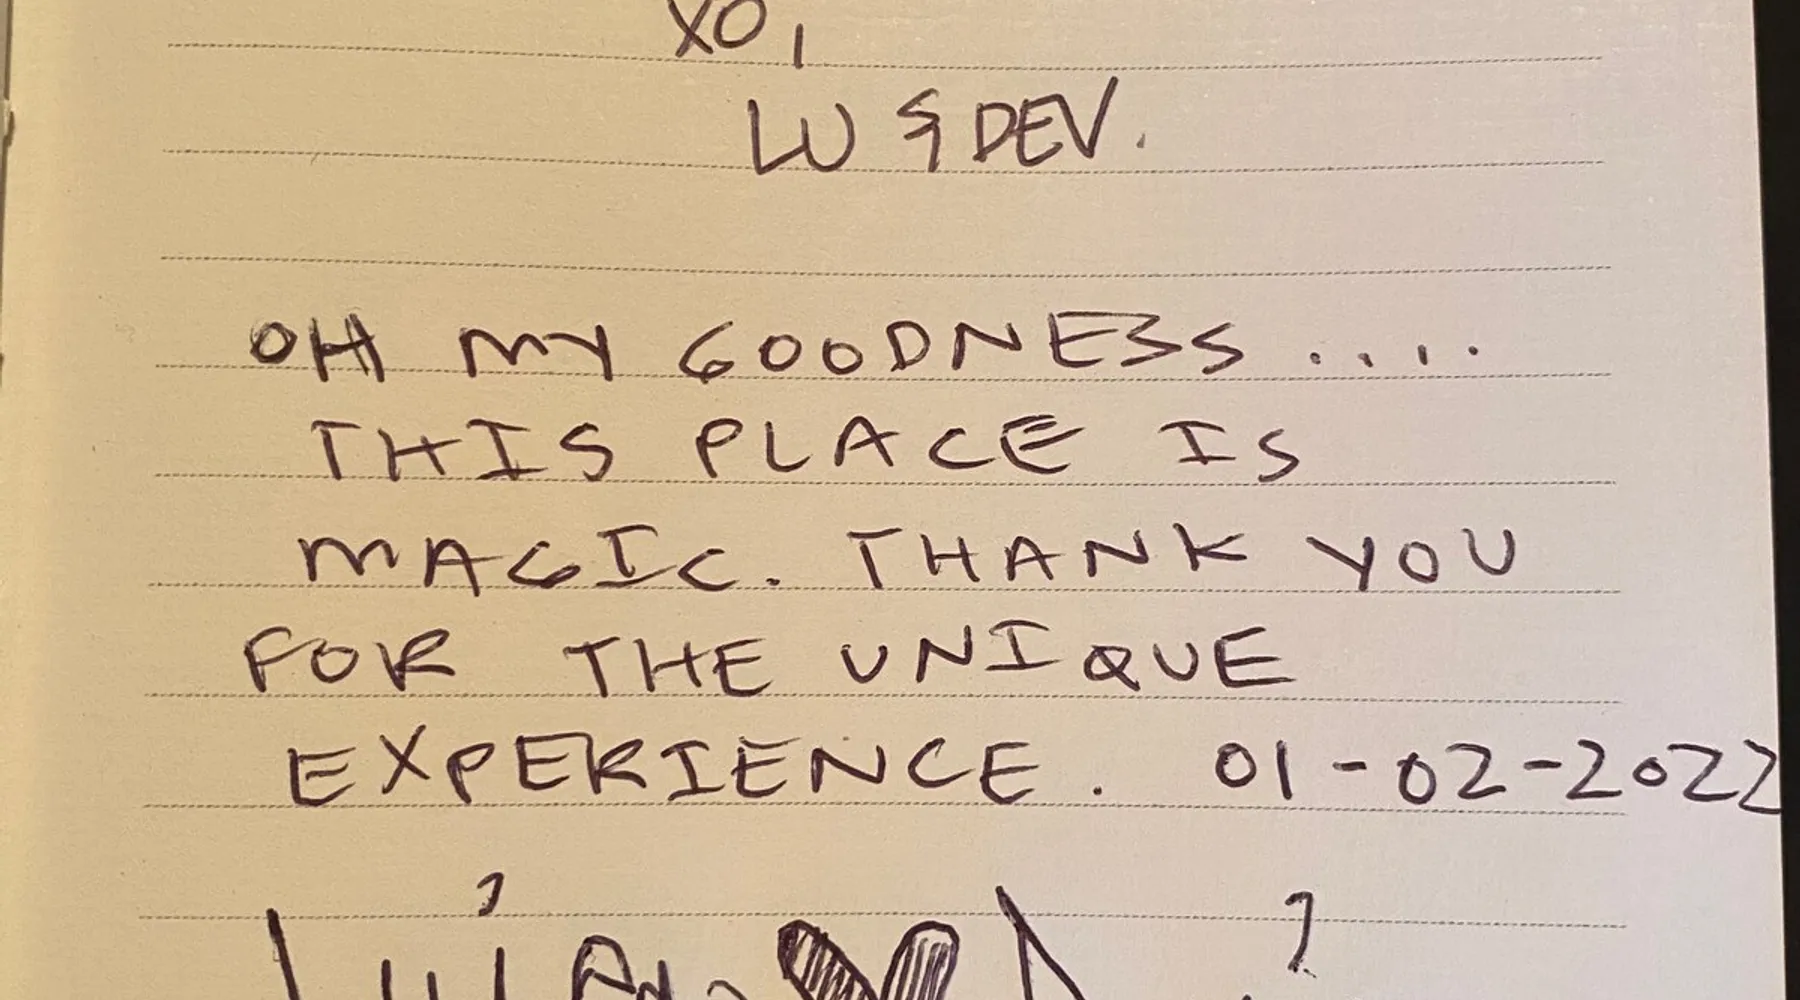 XO,
LU & DEV.
OH MY GOODNESS....
THIS PLACE IS
MAGIC. THANK YOU
FOR THE UNIQUE
EXPERIENCE. 01-02-2022